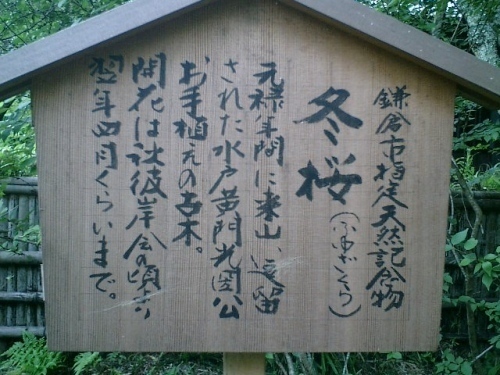 鎌倉市指定天然記念物
冬桜
（ふゆざくら）
元禄年間に来山、逗留
された水戸黄門光圀公
お手植えの古木。
開花は秋彼岸会の頃より
翌年四月くらいまで。